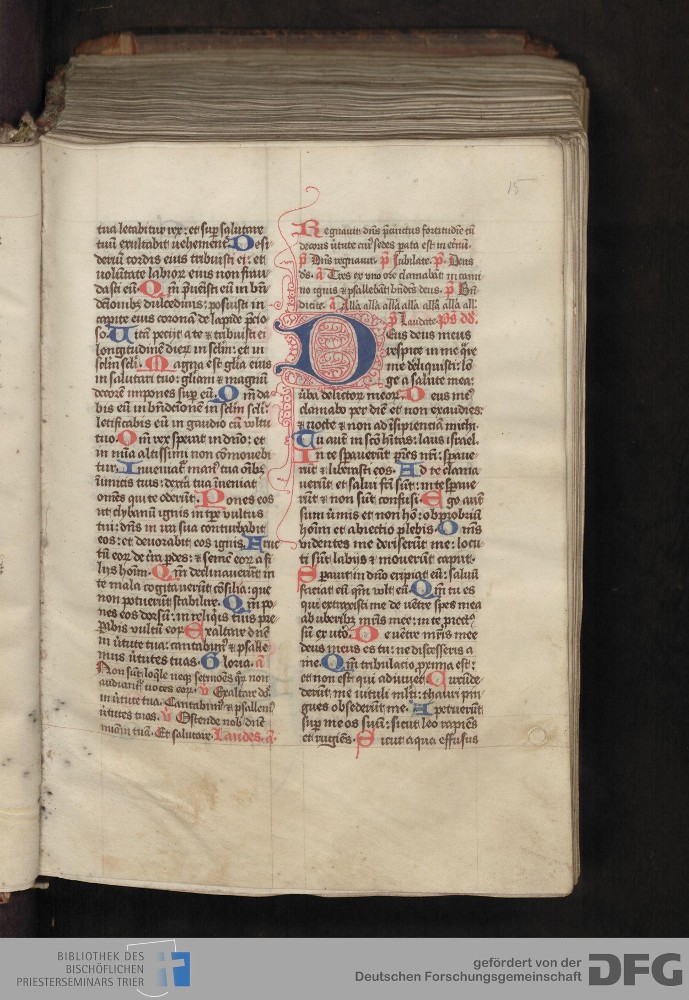 15
tua letabitur rex: et sup salutare
tuū exultabit uehement̄. Desi
deriū cordis eius tribuisti ei: et
uolūtate labior eius non frau
dasti eū. Qm̄ p̄uēisti eū in bn̄
dc̄ionibꝫ dulcedinis: posuisti in
capite eius coronā de lapide p̄cio
so. Vitā petijt a te ⁊ tribuisti ei
longitudinē dierꝝ in sclm̄: et in
sclm̄ scli. Magna est glia eius
in salutari tuo: gliam ⁊ magnū
decorē impones sup eū. Qm̄ da
bis eū in bn̄dictionē in sclm̄ scli:
letificabis eū in gaudio cū vultu
tuo. Qm̄ rex sperat in dn̄o: et
in mīa altissimi non cōmouebi
tur. Inueniat᷑ manꝰ tua oībꝫ
inimicis tuis: dextra tua īueniat
omēs qui te oderūt. Pones eos
ut clybanū ignis in tp̄e vultus
tui: dn̄s in ira sua conturbabit
eos: et deuorabit eos ignis. Fruc
tū eoꝝ de t̄ra p̄des: ⁊ semē eoꝝ a fi
lijs hoīm. Qm̄ declinauerūt in
te mala cogitauerūt cōsilia: que
non potuerūt stabilire. Qm̄ po
nes eos dorsū: in reliq̄is tuis pre
parabis vultū eoꝝ. Exaltare dn̄e
in ūtute tua: cantabimꝰ ⁊ psalle
mus ūtutes tuas. Gloria. a
Non sūt loq̄le neqꝫ sermōes qꝝ non
audiant᷑ uoces eoꝝ. v Exaltare dn̄e
in ūtute tua. Cantabimꝰ ⁊ psallemꝰ
ūtutes tuas. v Ostende nob̄ dn̄e
mīam tuā. Et salutare. Laudes. a.
Regnauit dn̄s p̄cinctus fortitudīe cū
decoris ūtute cuiꝰ sedes parata est in etnū.
p̄ Dn̄s regnauit. p̄ Jubilate. p̄. Deus
ds̄. a Tres ex vno ore clamabāt in cami
no ignis ⁊ psallebāt bn̄dc̄s deus. p̄ Bn̄
dicite. a Alla alla alla alla alla alla all.
p̄ Laudate. Ps dd.
Deus deus meus
respice in me q̄re
me dēliquisti: lō
ge a salute mea
ūba delictoꝝ meoꝝ. Deus me
clamabo per diē et non exaudies:
⁊ nocte ⁊ non ad īsipientiā michi.
Tu aut̄ in scō hitas: laus israel.
In te sperauerūt p̄res nr̄i: spaue
rūt ⁊ liberasti eos. Ad te clama
uerūt et salui fc̄i sūt: in te spaue
rūt ⁊ non sūt confusi. Ego aut̄
sum ūmis et non hō: obprobriū
hoīm et abiectio plebis. Omēs
videntes me deriserūt me: locu
ti sūt labijs ⁊ mouerūt caput.
Spauit in dn̄o eripiat eū: saluū
faciat eū qm̄ vult eū. Qm̄ tu es
qui extraxisti me de uētre spes mea
ab uberibꝫ mr̄is mee: in te p̄iect
sū ex utō. De uētre mr̄is mee
deus meus es tu: ne discesseris a
me. Qm̄ tribulacio proxima est:
et non est qui adiuuet. Circūde
derūt me uituli mlti: thauri pin
gues obsederūt me. Aperuerūt
super me os suū: sicut leo rapiēs
et rugiēs. Sicut aqua effusus
BIBLIOTHEK DES
BISCHÖFLICHEN
PRIESTERSEMINARS TRIER
gefördert von der
Deutschen Forschungsgemeinschaft
DFG